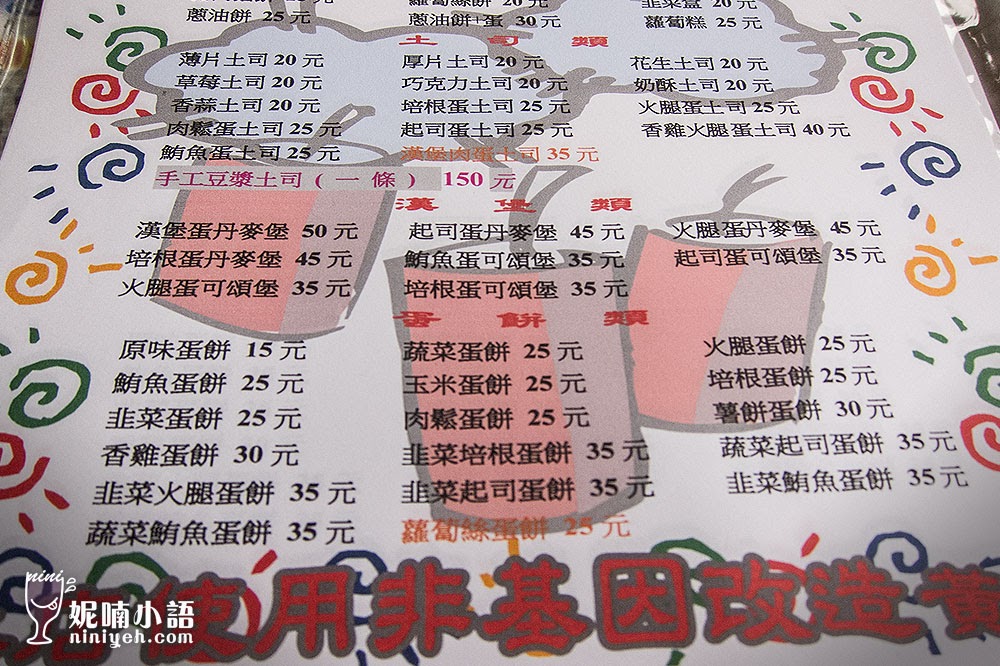 蔥油餅 25 元 蘿蔔絲餅 20 元 韭菜盒 20 元
蔥油餅+蛋 30 元 蘿蔔糕 25 元
土司類
薄片土司 20 元 厚片土司 20 元 花生土司 20 元
草莓土司 20 元 巧克力土司 20 元 奶酥土司 20 元
香蒜土司 20 元 培根蛋土司 25 元 火腿蛋土司 25 元
肉鬆蛋土司 25 元 起司蛋土司 25 元 香雞火腿蛋土司 40 元
鮪魚蛋土司 25 元 漢堡肉蛋土司 35 元
手工豆漿土司 ( 一 條 ) 150 元
漢堡類
漢堡蛋丹麥堡 50 元 起司蛋丹麥堡 45 元 火腿蛋丹麥堡 45 元
培根蛋丹麥堡 45 元 鮪魚蛋可頌堡 35 元 起司蛋可頌堡 35 元
火腿蛋可頌堡 35 元 培根蛋可頌堡 35 元
蛋餅類
原味蛋餅 15 元 蔬菜蛋餅 25 元 火腿蛋餅 25 元
鮪魚蛋餅 25 元 玉米蛋餅 25 元 培根蛋餅 25 元
韭菜蛋餅 25 元 肉鬆蛋餅 25 元 薯餅蛋餅 30 元
香雞蛋餅 30 元 韭菜培根蛋餅 35 元 蔬菜起司蛋餅 35 元
韭菜火腿蛋餅 35 元 韭菜起司蛋餅 35 元 韭菜鮪魚蛋餅 35 元
蔬菜鮪魚蛋餅 35 元 蘿蔔絲蛋餅 25 元
使用非基因改造黃
nini
妮喃小語
niniyeh.com